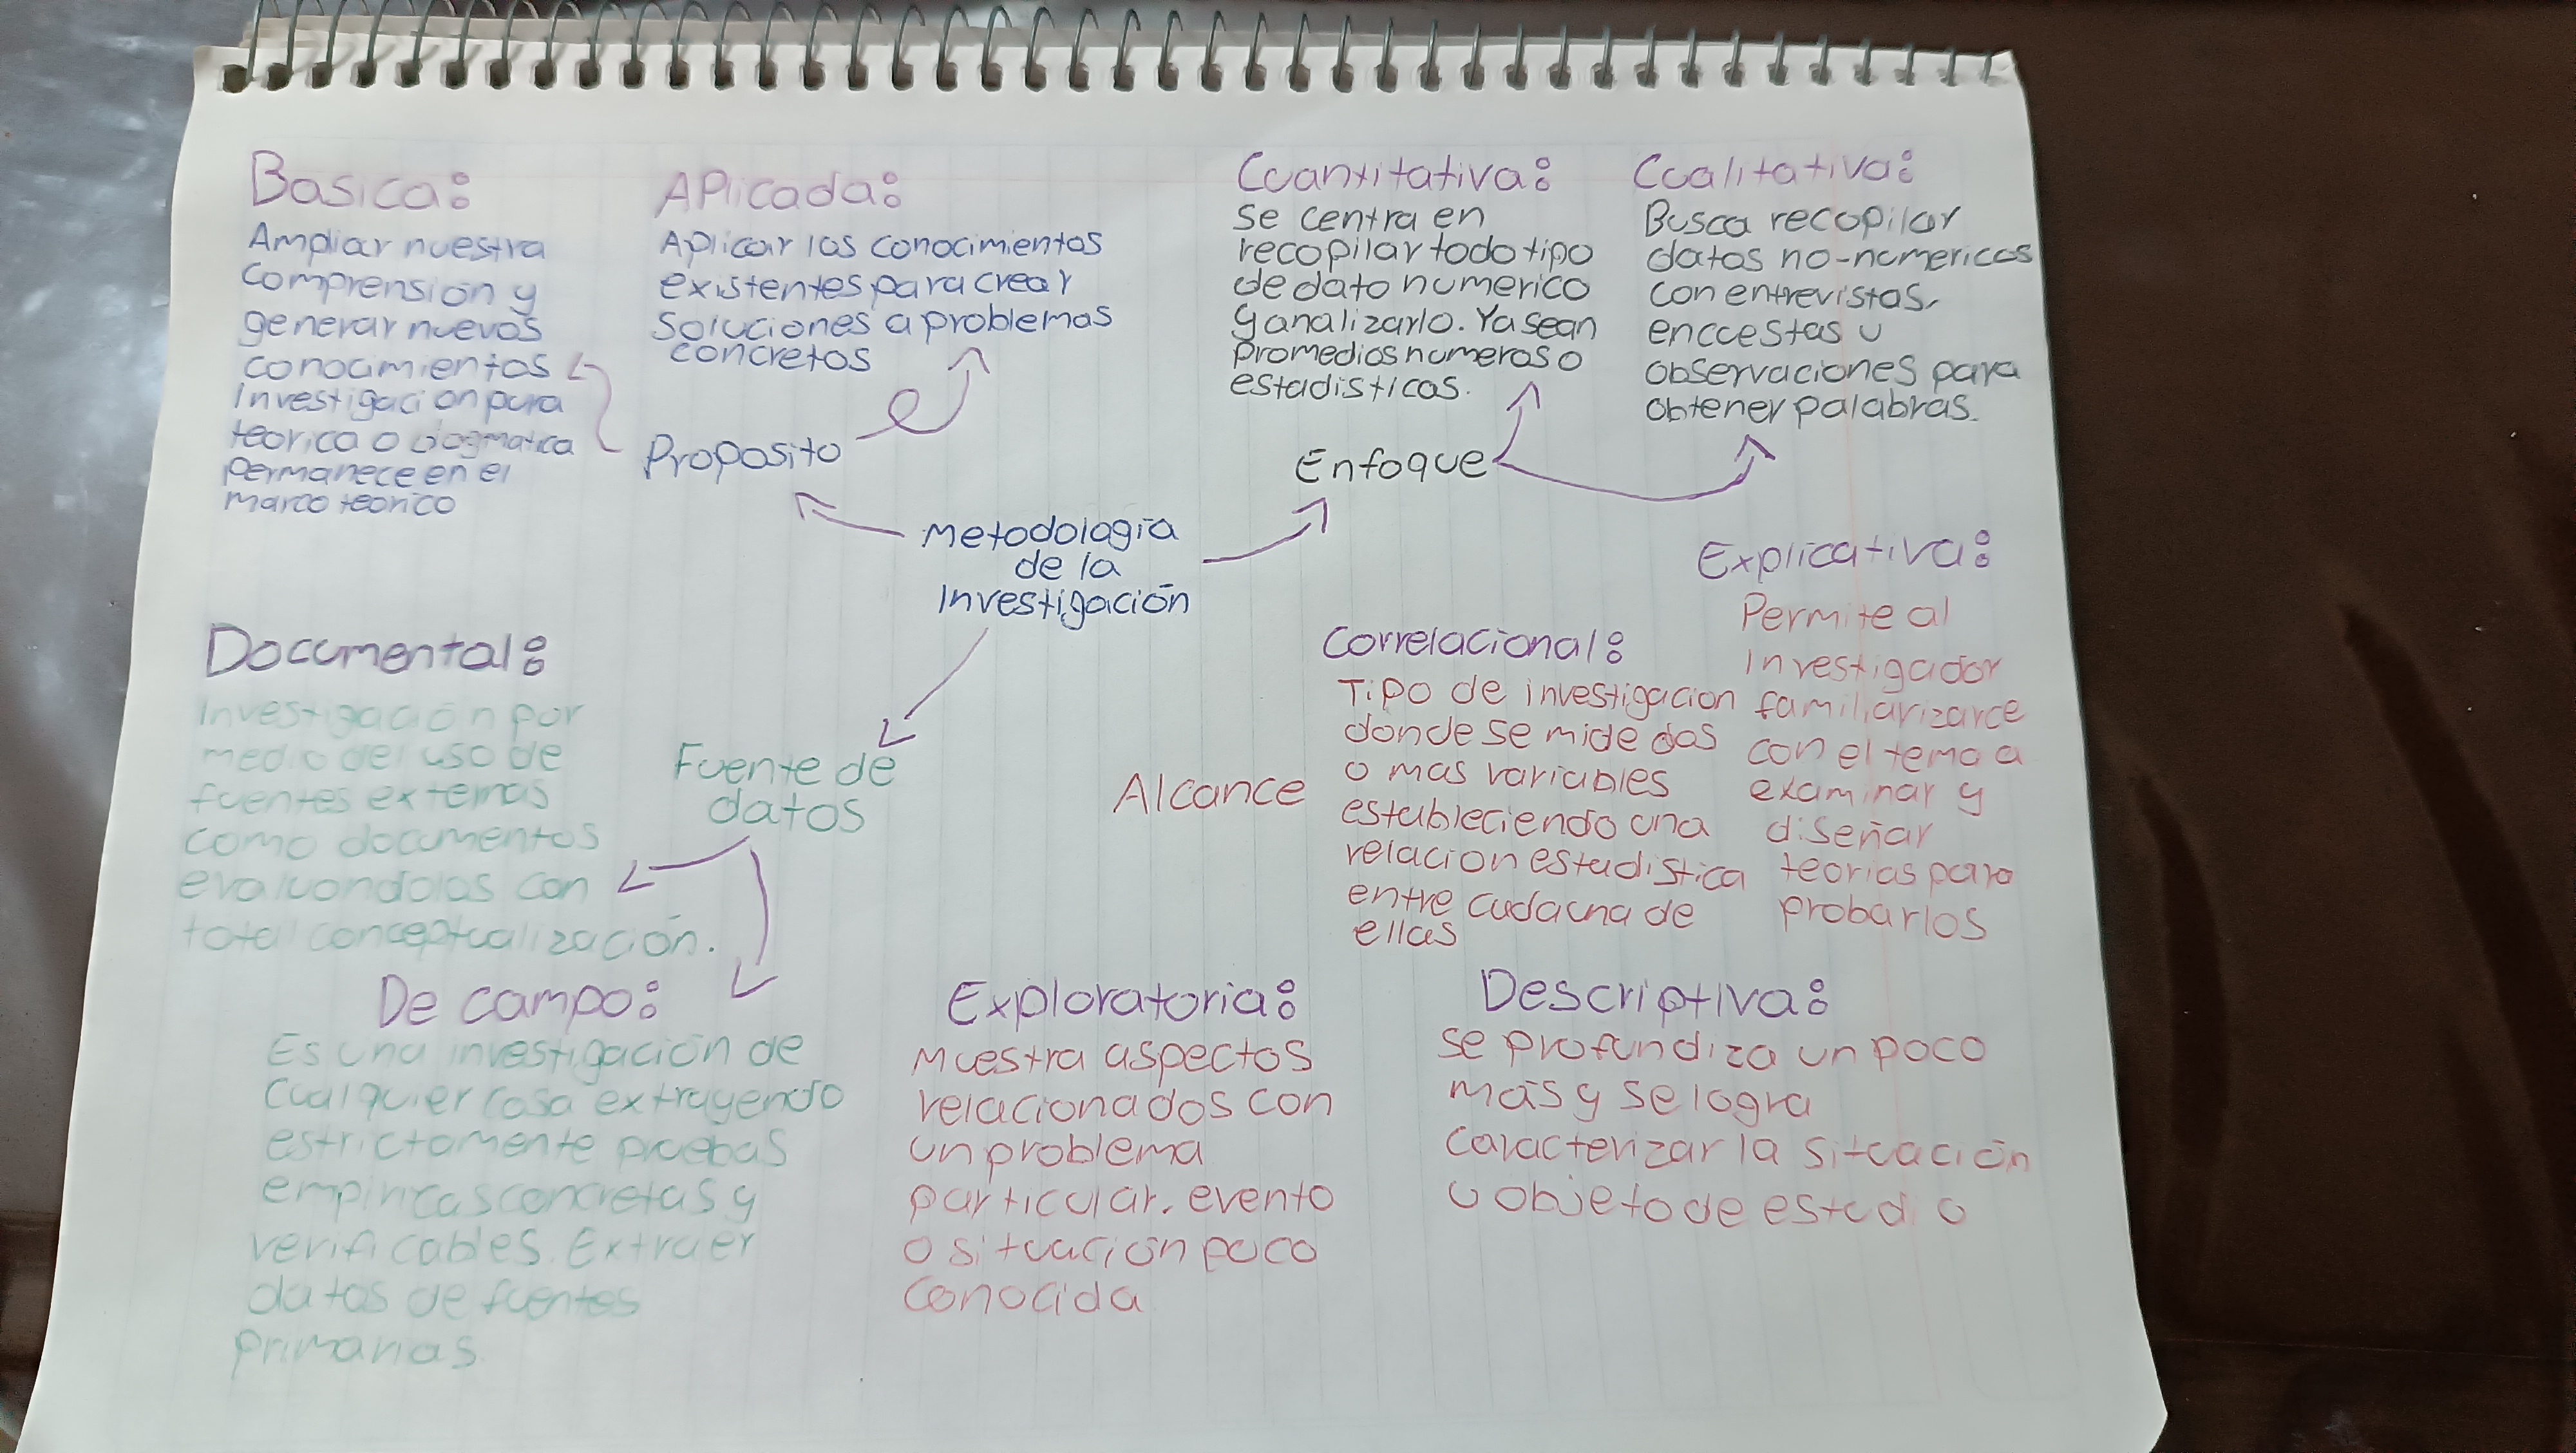 Basica:
Ampliar nuestra
comprensión y
generar nuevos
conocimientos
Investigacion pura
teorica o dogmatica
permanece en el
marco teorico
APlicada:
Aplicar los conocimientos
existentes para crear
soluciones a problemas
concretos
Proposito
Cuantitativa:
se centra en
recopilar todo tipo
de dato numerico
y analizarlo. Ya sean
Promedios numeros o
estadisticas.
Cualitativa:
Busca recopilar
datos no-numericos
con entrevistas,
enccestas u
observaciones para
obtener palabras.
Enfoque
Metodologia
de la
Investigación
Documental:
Investigación por
medio del uso de
fuentes externas
como documentos
evaluandolas con
total conceptualización.
Fuente de
datos
De campo:
Es una investigación de
Cualquier cosa extrayendo
estrictamente pruebas
empiricas concretas y
verificables. Extraer
datos de fuentes
primarias.
Alcance
Correlacional:
Tipo de investigacion
donde se mide dos
o mas variables
estableciendo una
relacion estadistica
entre cada una de
ellas
Explicativa:
Permite al
Investigador
familiarizarce
con el tema a
examinar y
diseñar
teorias para
probarlos
Exploratoria:
Muestra aspectos
relacionados con
un problema
particular, evento
o situación poco
conocida
Descriptiva:
se profundiza un poco
más y se logra
caracterizar la situación
u objeto de estudio